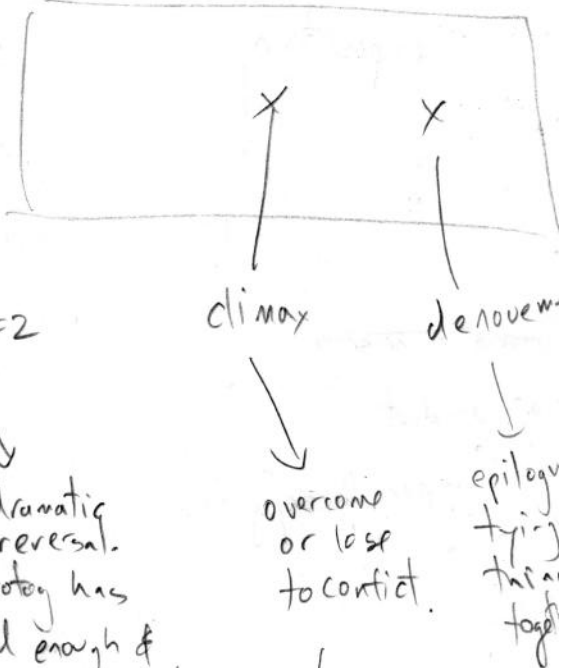 X X
=2
climax
denouem
dramatic
reversal.
has
enough &
overcome
or lose
to confict.
epilogu
tying
toget